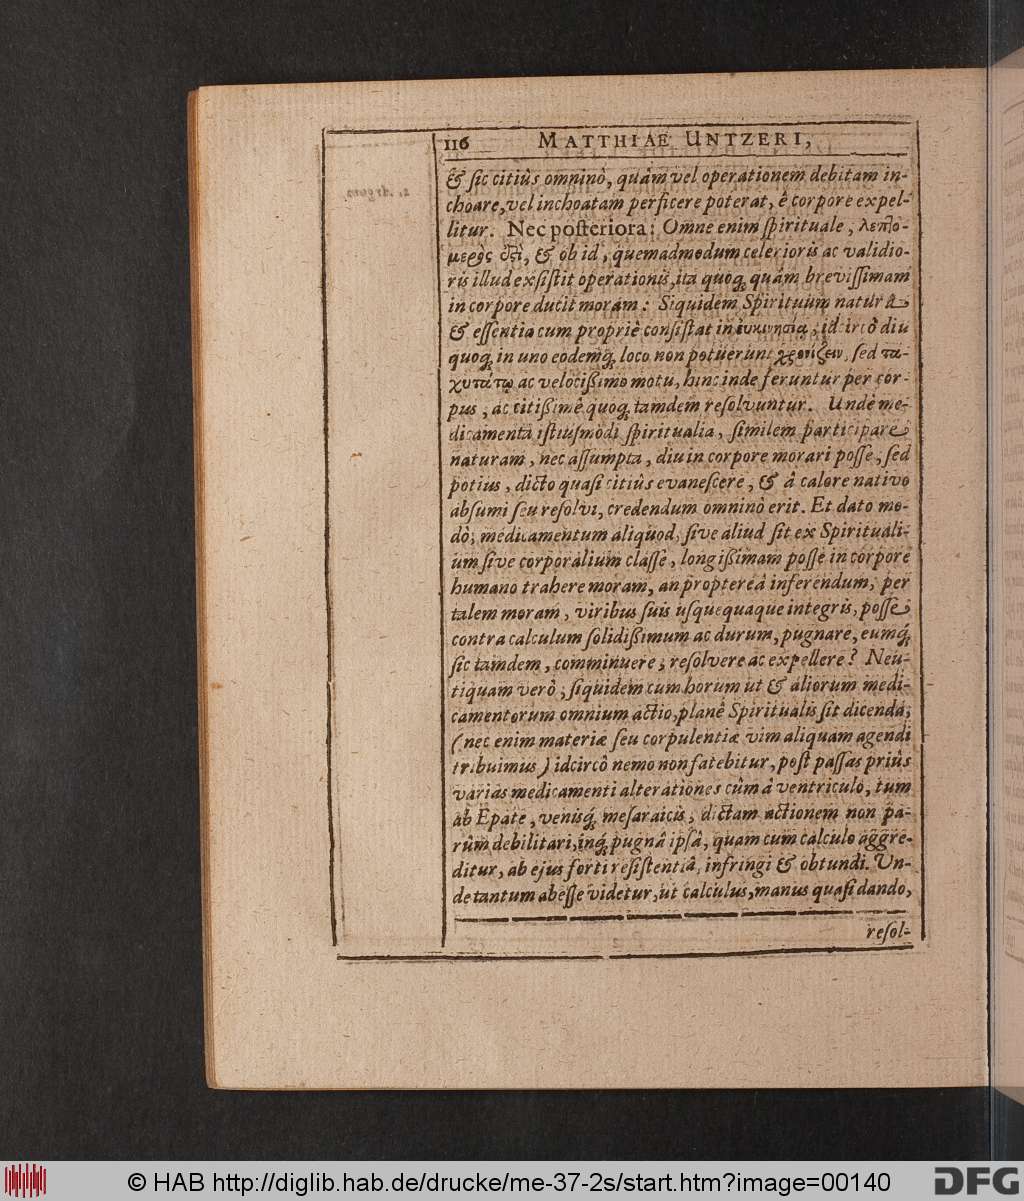 116 MATTHIAE UNTZERI,
& sic citiùs omninò, quàm vel operationem debitam in-
choare, vel inchoatam perficere poterat, è corpore expel-
litur. Nec posteriora: Omne enim spirituale, λεπτο-
μερὸς ἐστὶ, & ob id, quemadmodum celerioris ac validio-
ris illud exsistit operationis, ita quoq; quàm brevissimam
in corpore ducit moram: Siquidem Spirituum naturâ
& essentia cum propriè consistat in ἐυκινησίᾳ, idcircò diu
quoq; in uno eodemq; loco non potuerunt χρονίζειν, sed τα-
χυτάτῳ ac velocißimo motu, hinc inde feruntur per cor-
pus, ac citißimè quoq; tamdem resolvuntur. Unde me-
dicamenta istiusmodi spiritualia, similem participare
naturam, nec assumpta, diu in corpore morari posse, sed
potius, dicto quasi citiùs evanescere, & â calore nativo
absumi seu resolvi, credendum omninò erit. Et dato mo-
dò, medicamentum aliquod, sive aliud sit ex Spirituali-
um sive corporalium classe, longißimam posse in corpore
humano trahere moram, an proptereâ inferendum, per
talem moram, viribus suis usquequaque integris, posse
contra calculum solidißimum ac durum, pugnare, eumq;
sic tamdem, comminuere, resolvere ac expellere? Neu-
tiquam verò; siquidem cum horum ut & aliorum medi-
camentorum omnium actio, planè Spiritualis sit dicenda;
(nec enim materiæ seu corpulentiæ vim aliquam agendi
tribuimus) idcircò nemo non fatebitur, post passas priùs
varias medicamenti alterationes cùm â ventriculo, tum
ab Epate, venisq; mesaraicis, dictam actionem non pa-
rùm debilitari, inq; pugnâ ipsâ, quam cum calculo aggre-
ditur, ab ejus forti resistentiâ, infringi & obtundi. Un-
de tantum abesse videtur, ut calculus, manus quasi dando,
resol-
© HAB http://diglib.hab.de/drucke/me-37-2s/start.htm?image=00140
DFG